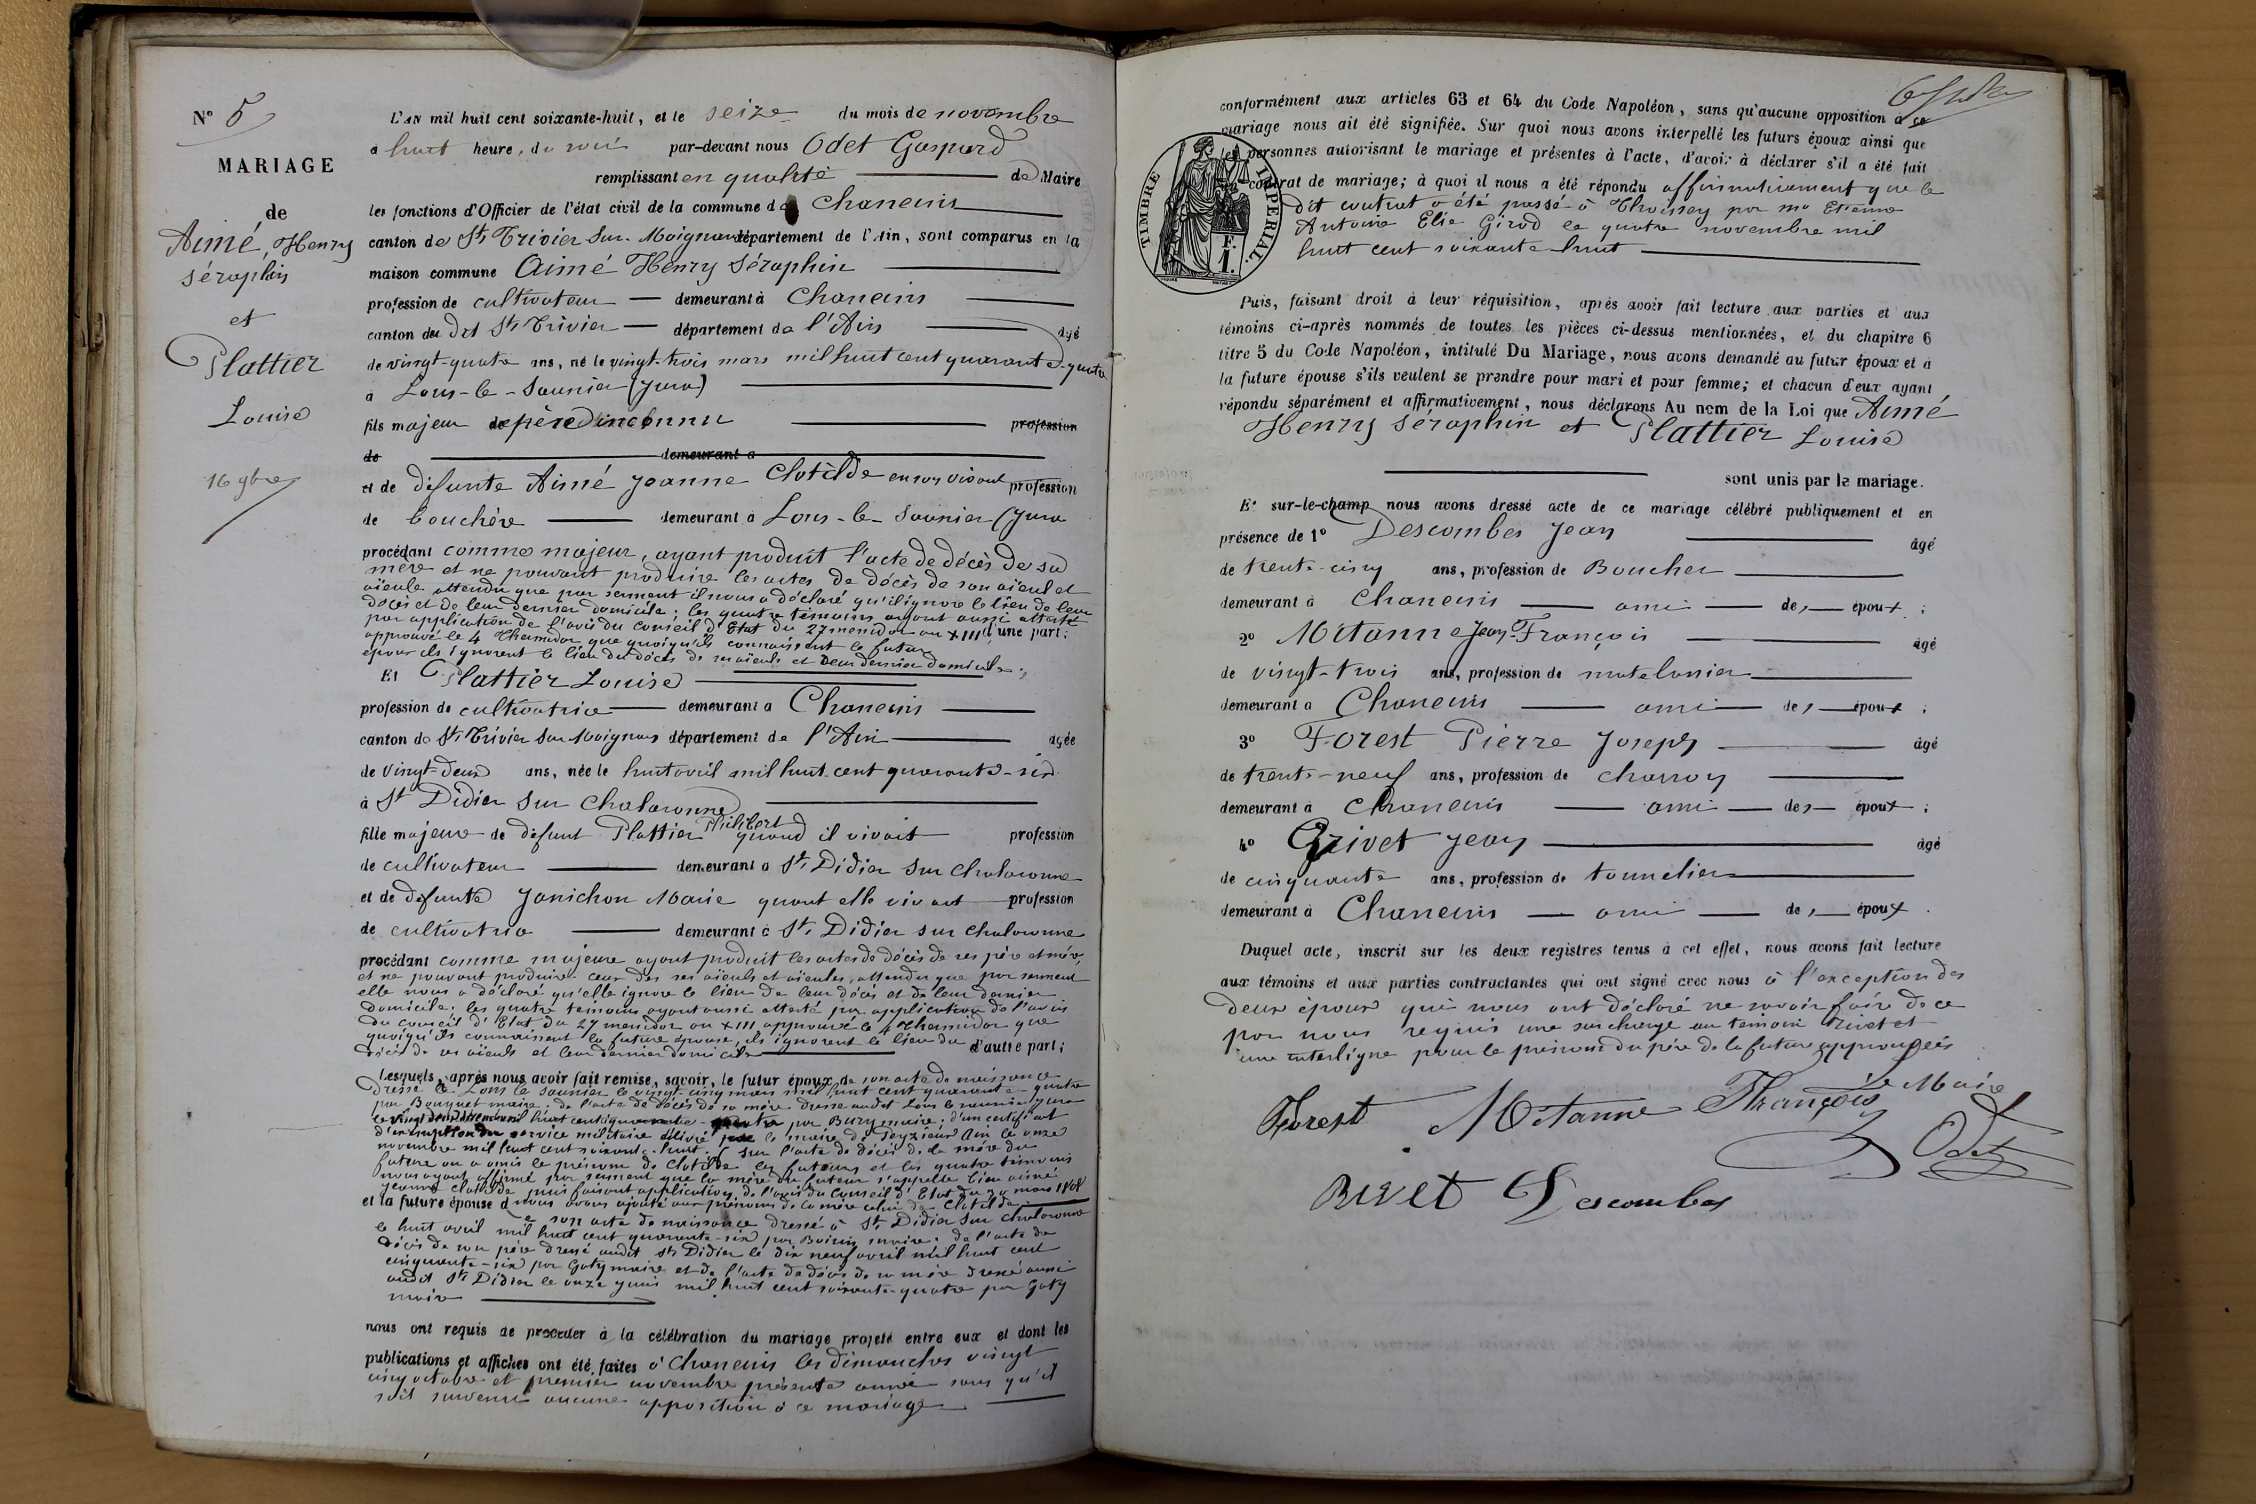 N° 5
MARIAGE
de
Aimé, Henry
Séraphin
et
Plattier
Louise
16 9bre
L'AN mil huit cent soixante-huit, et le seize du mois de novembre
à huit heure, du soir par-devant nous Odet Gaspard
remplissant en qualité de Maire
les fonctions d'Officier de l'état civil de la commune de Chaneins
canton de St Trivier sur Moignans département de l'Ain, sont comparus en la
maison commune Aimé Henry Séraphin
profession de cultivateur demeurant à Chaneins
canton du dit St Trivier département de l'Ain âgé
de vingt-quatre ans, né le vingt-trois mars mil huit cent quarante-quatre
à Lons-le-Saunier (Jura)
fils majeur de père inconnu profession
de demeurant à
et de défunte Aimé Jeanne Clotilde en son vivant profession
de bouchère demeurant à Lons-le-Saunier (Jura
procédant comme majeur, ayant produit l'acte de décès de sa
mère et ne pouvant produire les actes de décès de son aïeul et
aïeule attendu que par serment il nous a déclaré qu'il ignore le lieu de leur
décès et de leur dernier domicile; les quatre témoins ayant aussi attesté
par application de l'avis du conseil d'Etat du 27 messidor an XIII d'une part;
approuvé le 4 thermidor que quoiqu'ils connaissent le futur
époux ils ignorent le lieu du décès de ses aïeuls et leur dernier domicile;
Et Plattier Louise
profession de cultivatrice demeurant à Chaneins
canton de St Trivier sur Moignans département de l'Ain âgée
de vingt-deux ans, née le huit avril mil huit cent quarante-six
à St Didier sur Chalaronne
Philibert
fille majeure de défunt Plattier quand il vivait profession
de cultivateur demeurant à St Didier sur Chalaronne
et de défunte Janichon Marie quant elle vivait profession
de cultivatrice demeurant à St Didier sur Chalaronne
procédant comme majeure ayant produit les actes de décès de ses père et mère
et ne pouvant produire ceux des ses aïeuls et aïeules, attendu que par serment
elle nous a déclaré qu'elle ignore le lieu de leur décès et de leur dernier
domicile, les quatre témoins ayant aussi attesté par application de l'avis
du conseil d'Etat du 27 messidor an XIII approuvé le 4 thermidor que
quoiqu'ils connaissent la future épouse, ils ignorent le lieu du
décès de ses aïeuls et leur dernier domicile d'autre part;
Lesquels, après nous avoir fait remise, savoir, le futur époux de son acte de naissance
dressé à Lons le Saunier le vingt-cinq mars mil huit cent quarante-quatre
par Bouquet maire, de l'acte de décès de sa mère dressé audit Lons le Saunier Jura
le vingt mil huit cent quarante-quatre par maire; d'un certificat
d'exemption du service militaire délivré par le maire de Peyzieux Ain le onze
novembre mil huit cent soixante-huit. Sur l'acte de décès de la mère du
future on a omis le prénom de Clotilde les futeurs et les quatre témoins
nous ayant affirmé par serment que la mère du futeur s'appelle bien aimé
Jeanne Clotilde, puis faisant application de l'avis du conseil d'Etat du 30 mars 1808
et la future épouse d nous avons ajouté aux prénoms de la mère celui de Clotilde
e son acte de naissance dressé à St Didier sur Chalaronne
le huit avril mil huit cent quarante-six par maire. de l'acte de
décès de son père dressé audit St Didier le dix neuf avril mil huit cent
cinquante-six par Goty maire et de l'acte de décès de sa mère dressé aussi
audit St Didier le onze juin mil huit cent soixante-quatre par Goty
maire
nous ont requis de procéder à la célébration du mariage projeté entre eux et dont les
publications et affiches ont été faites à Chaneins les dimanches vingt
cinq octobre et premier novembre présente année sans qu'il
soit survenu aucune opposition à ce mariage
conformément aux articles 63 et 64 du Code Napoléon, sans qu'aucune opposition à ce
mariage nous ait été signifiée. Sur quoi nous avons interpellé les futurs époux ainsi que
les personnes autorisant le mariage et présentes à l'acte, d'avoir à déclarer s'il a été fait
contrat de mariage; à quoi il nous a été répondu affirmativement que le
dit contrat a été passé à Thoissey par Me Etienne
Antoine Elie Girod le quatre novembre mil
huit cent soixante huit
TIMBRE IMPERIAL.
F.
1.
Puis, faisant droit à leur réquisition, après avoir fait lecture aux parties et aux
témoins ci-après nommés de toutes les pièces ci-dessus mentionnées, et du chapitre 6
titre 5 du Code Napoléon, intitulé Du Mariage, nous avons demandé au futur époux et à
la future épouse s'ils veulent se prendre pour mari et pour femme; et chacun d'eux ayant
répondu séparément et affirmativement, nous déclarons Au nom de la Loi que Aimé
Henry Séraphin et Plattier Louise
sont unis par le mariage.
Et sur-le-champ nous avons dressé acte de ce mariage célébré publiquement et en
présence de 1° Descombes Jean âgé
de trente-cinq ans, profession de Boucher
demeurant à Chaneins ami des époux;
2° Mitanne Jean-François âgé
de vingt-trois ans, profession de matelassier
demeurant à Chaneins ami des époux;
3° Forest Pierre Joseph âgé
de trente-neuf ans, profession de charron
demeurant à Chaneins ami des époux;
4° Rivet Jean âgé
de cinquante ans, profession de tonnelier
demeurant à Chaneins ami des époux.
Duquel acte, inscrit sur les deux registres tenus à cet effet, nous avons fait lecture
aux témoins et aux parties contractantes qui ont signé avec nous à l'exception des
deux époux qui nous ont déclaré ne savoir faire de ce
par nous requis une surcharge au témoin Rivet et
une interligne pour le prénom du père de la future approuvées
Forest Mitanne François le Maire
Odet
Rivet Descombes